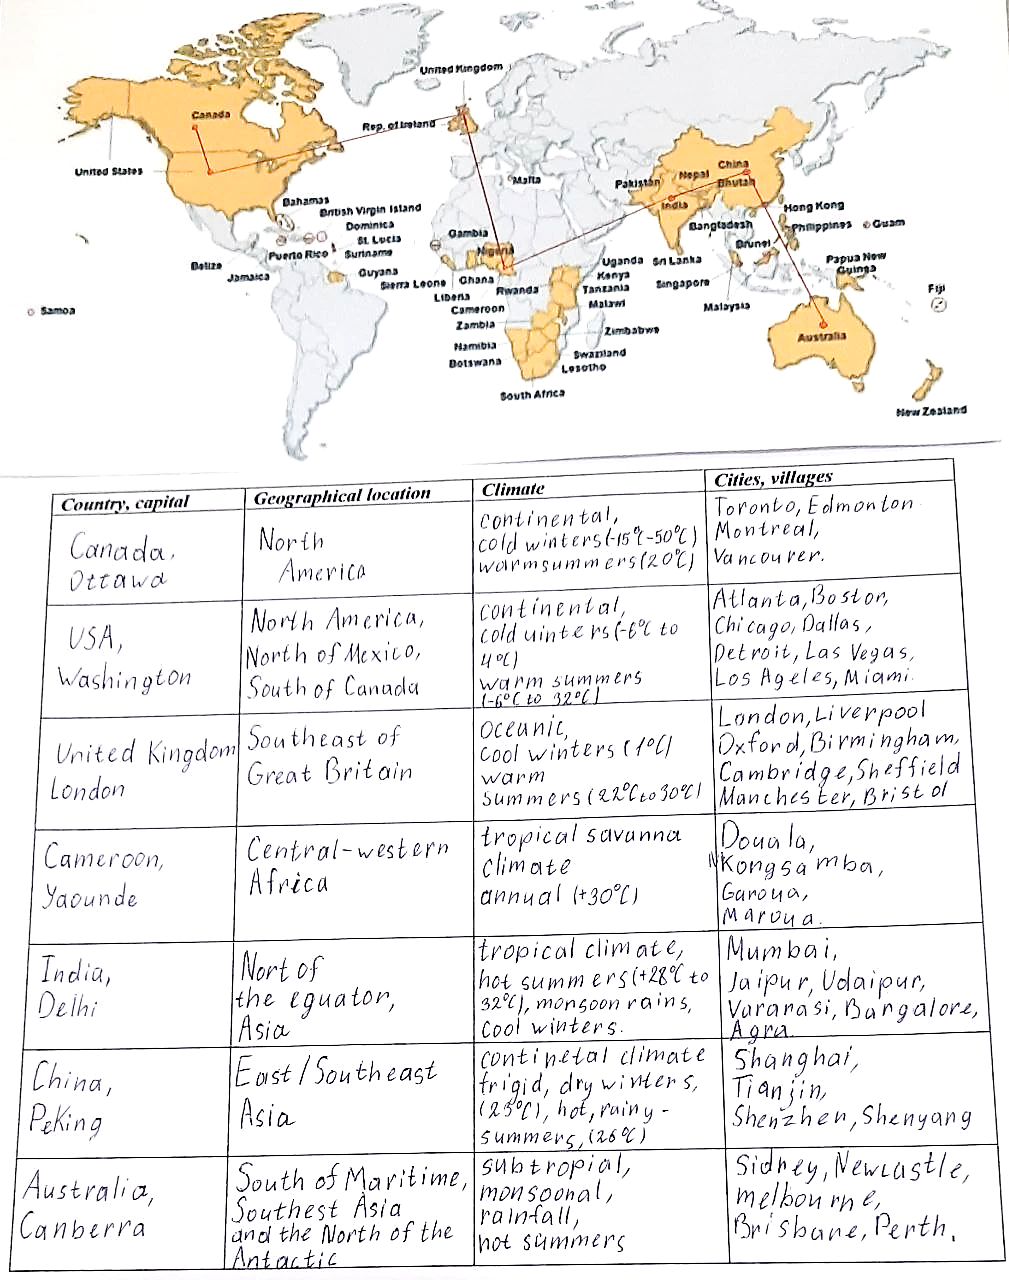 United Kingdom
Canada
Rep. of Ireland
United States
Malta
China
Nepal
Pakistan
Bhutan
India
Bahamas
British Virgin Island
Hong Kong
Dominica
Gambia
Bangladesh
Philippines
Guam
St. Lucia
Nigeria
Brunei
Puerto Rico
Suriname
Belize
Uganda
Sri Lanka
Papua New
Guinga
Jamaica
Guyana
Kenya
Sierra Leone
Ghana
Tanzania
Singapore
Fiji
Rwanda
Liberia
Malawi
Malaysia
Samoa
Cameroon
Zambia
Zimbabwe
Australia
Namibia
Swaziland
Botswana
Lesotho
South Africa
New Zealand
Country, capital
Geographical location
Climate
Cities, villages
Canada,
Ottawa
North
America
continental,
cold winters (-15°C-50°C)
warm summers (20°C)
Toronto, Edmonton
Montreal,
Vancouver.
USA,
Washington
North America,
North of Mexico,
South of Canada
continental,
cold uinters (-6°C to
4°C)
warm summers
(-6°C to 32°C)
Atlanta, Bostor,
Chicago, Dallas,
Detroit, Las Vegas,
Los Ageles, Miami.
United Kingdom
London
Southeast of
Great Britain
oceanic,
cool winters (1°C)
warm
summers (22°C to 30°C)
London, Liverpool
Oxford, Birmingham,
Cambridge, Sheffield
Manchester, Bristol
Cameroon,
Yaounde
Central-western
Africa
tropical savanna
climate
annual (+30°C)
Douala,
Nkongsamba,
Garoua,
Maroua.
India,
Delhi
Nort of
the equator,
Asia
tropical climate,
hot summers (+28°C to
32°C), monsoon rains,
cool winters.
Mumbai,
Jaipur, Udaipur,
Vararasi, Bangalore,
Agra
China,
Peking
East/Southeast
Asia
continetal climate
frigid, dry winters,
(23°C), hot, rainy-
summers, (26°C)
Shanghai,
Tianjin,
Shenzhen, Shenyang
Australia,
Canberra
South of Maritime,
Southest Asia
and the North of the
Antactic
subtropial,
monsoonal,
rainfall,
hot summers
Sidney, Newcastle,
melbourne,
Brisbane, Perth.